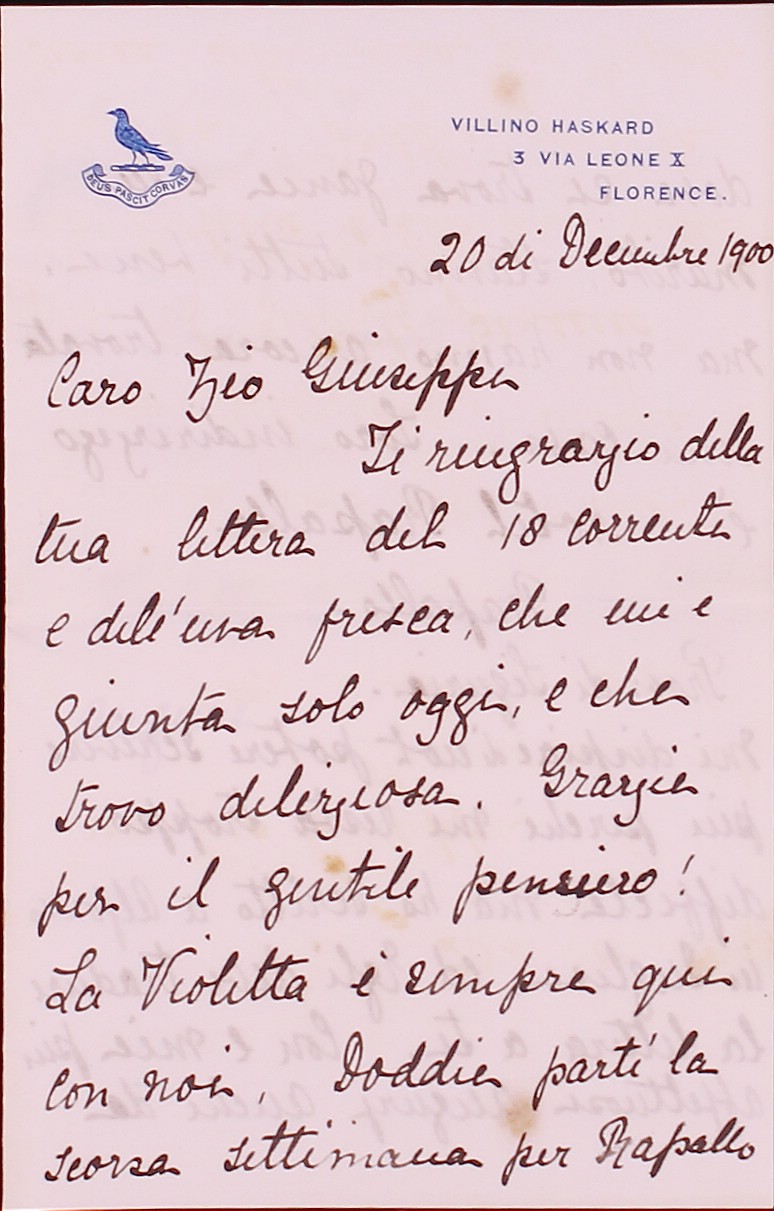 DEUS PASCIT CORVOS
VILLINO HASKARD
3 VIA LEONE X
FLORENCE.
20 di Decembre 1900
Caro Zio Giuseppe
Ti ringrazio della
tua lettera del 18 corrente
e dell'uva fresca, che mi e
giunta solo oggi, e che
trovo deliziosa. Grazie
per il gentile pensiero!
La Violetta è sempre qui
con noi, Doddie partì la
scorsa settimana per Rapallo